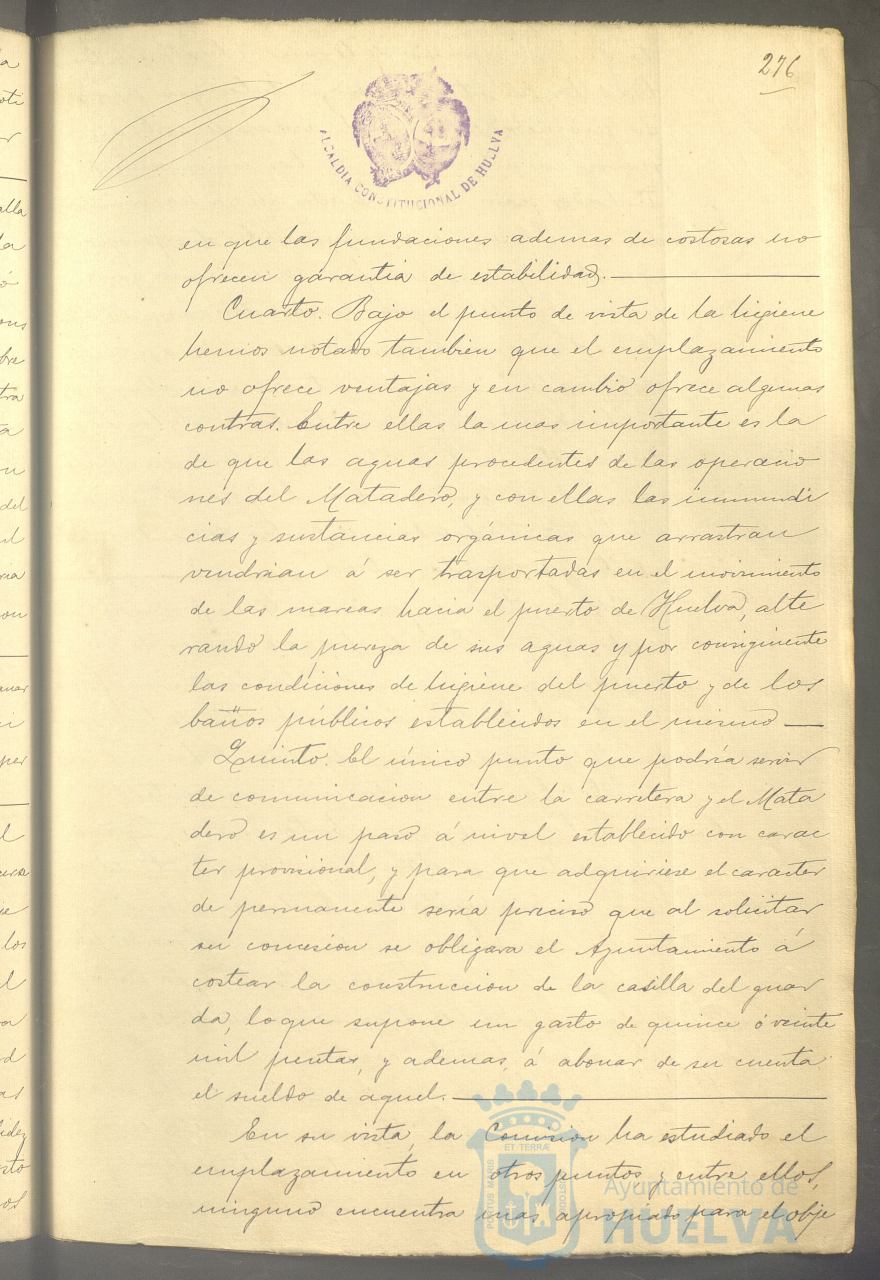 276
ALCALDIA CONSTITUCIONAL DE HUELVA
en que las fundaciones ademas de costosas no
ofrecen garantia de estabilidad.
Cuarto. Bajo el punto de vista de la higiene
hemos notado tambien que el emplazamiento
no ofrece ventajas y en cambio ofrece algunas
contras. Entre ellas la mas importante es la
de que las aguas procedentes de las operacio
nes del Matadero, y con ellas las inmundi
cias y sustancias orgánicas que arrastran
vendrian á ser trasportadas en el movimiento
de las mareas hacia el puerto de Huelva, alte
rando la pureza de sus aguas y por consiguiente
las condiciones de higiene del puerto y de los
baños públicos establecidos en el mismo
Quinto. El único punto que podría servir
de comunicacion entre la carretera y el Mata
dero es un paso á nivel establecido con carac
ter provisional, y para que adquiriese el caracter
de permanente sería preciso que al solicitar
su concesion se obligara el Ayuntamiento á
costear la construccion de la casilla del guar
da, lo que supone un gasto de quince ó veinte
mil pesetas, y ademas, á abonar de su cuenta
el sueldo de aquel.
En su vista, la Comision ha estudiado el
emplazamiento en otros puntos y entre ellos,
ninguno encuentra mas apropiado para el obje
PORTUS MARIS ET TERRÆ CUSTODIA
Ayuntamiento de
HUELVA